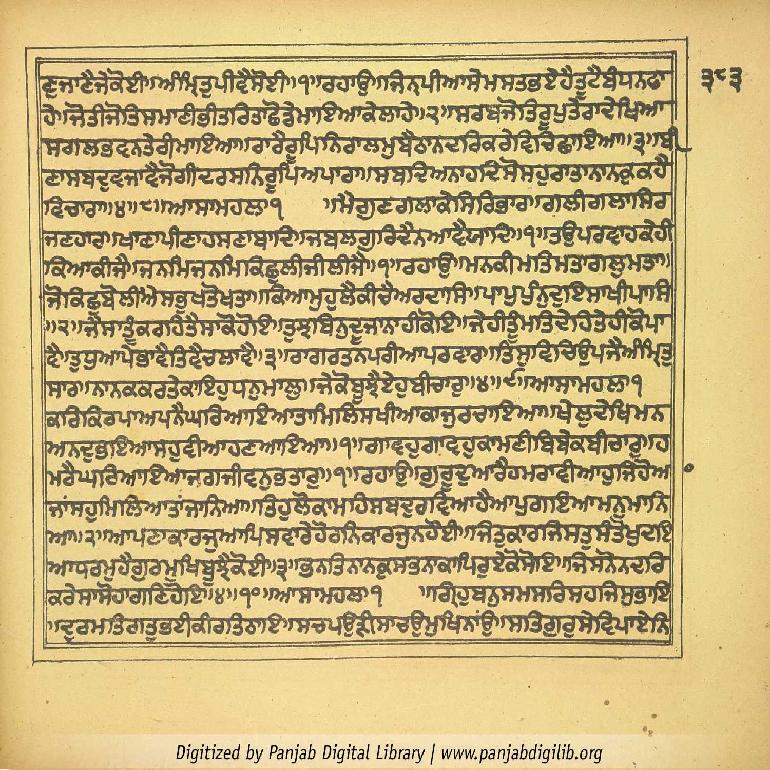 ੩੮੩
ਣੁਜਾਣੈਜੇਕੋਈ॥ਅੰਮ੍ਰਿਤੁਪੀਵੈਸੋਈ॥੧॥ਰਹਾਉ॥ਜਿਨ੍ਹਪੀਆਸੇਮਸਤਭਏਹੈਤੂਟੈਬੰਧਨਫਾ
ਹੇ॥ਜੋਤੀਜੋਤਿਸਮਾਣੀਭੀਤਰਿਤਾਛੋਡੇਮਾਇਆਕੇਲਾਹੇ॥੨॥ਸਰਬਜੋਤਿਰੂਪੁਤੇਰਾਦੇਖਿਆ
ਸਗਲਭਵਨਤੇਰੀਮਾਇਆ॥ਰਾਰੈਰੂਪਿਨਿਰਾਲਮੁਬੈਠਾਨਦਰਿਕਰੇਵਿਚਿਛਾਇਆ॥੩॥ਬੀ
ਣਾਸਬਦੁਵਜਾਵੈਜੋਗੀਦਰਸਨਿਰੂਪਿਅਪਾਰਾ॥ਸਬਦਿਅਨਾਹਦਿਸੋਸਹੁਰਾਤਾਨਾਨਕੁਕਹੈ
ਵਿਚਾਰਾ॥੪॥੮॥ਆਸਾਮਹਲਾ੧ ॥ਮੈਗੁਣਗਲਾਕੇਸਿਰਿਭਾਰ॥ਗਲੀਗਲਾਸਿਰ
ਜਣਹਾਰ॥ਖਾਣਾਪੀਣਾਹਸਣਾਬਾਦਿ॥ਜਬਲਗੁਰਿਦੈਨਆਵੈਯਾਦਿ॥੧॥ਤਉਪਰਵਾਹਕੇਹੀ
ਕਿਆਕੀਜੈ॥ਜਨਮਿਜਨਮਿਕਿਛੁਲੀਜੀਲੀਜੈ॥੧॥ਰਹਾਉ॥ਮਨਕੀਮਤਿਮਤਾਗਲੁਮਤਾ॥
ਜੋਕਿਛੁਬੋਲੀਐਸਭੁਖਤੋਖਤਾ॥ਕਿਆਮੁਹੁਲੈਕੀਚੈਅਰਦਾਸਿ॥ਪਾਪੁਪੁੰਨੁਦੁਇਸਾਖੀਪਾਸਿ
॥੨॥ਜੈਸਾਤੂੰਕਰਹਿਤੈਸਾਕੋਹੋਇ॥ਤੁਝਬਿਨੁਦੂਜਾਨਾਹੀਕੋਇ॥ਜੇਹੀਤੂੰਮਤਿਦੇਹਿਤੇਹੀਕੋਪਾ
ਵੈ॥ਤੁਧੁਆਪੇਭਾਵੈਤਿਵੈਚਲਾਵੈ॥੩॥ਰਾਗਰਤਨਪਰੀਆਪਰਵਾਰ॥ਤਿਸੁਵਿਚਿਉਪਜੈਅੰਮ੍ਰਿਤੁ
ਸਾਰ॥ਨਾਨਕਕਰਤੇਕਾਇਹੁਧਨੁਮਾਲੁ॥ਜੇਕੋਬੂਝੈਏਹੁਬੀਚਾਰੁ॥੪॥੯॥ਆਸਾਮਹਲਾ੧
ਕਰਿਕਿਰਪਾਅਪਨੈਘਰਿਆਇਆਤਾਮਿਲਿਸਖੀਆਕਾਜੁਰਚਾਇਆ॥ਖੇਲੁਦੇਖਿਮਨਿ
ਅਨਦੁਭਇਆਸਹੁਵੀਆਹਣਆਇਆ॥੧॥ਗਾਵਹੁਗਾਵਹੁਕਾਮਣੀਬਿਬੇਕਬੀਚਾਰੁ॥ਹ
ਮਰੈਘਰਿਆਇਆਜਗਜੀਵਨੁਭਤਾਰੁ॥੧॥ਰਹਾਉ॥ਗੁਰੂਦੁਆਰੈਹਮਰਾਵੀਆਹੁਜਿਹੋਆ
ਜਾਂਸਹੁਮਿਲਿਆਤਾਂਜਾਨਿਆ॥ਤਿਹੁਲੋਕਾਮਹਿਸਬਦੁਰਵਿਆਹੈਆਪੁਗਇਆਮਨੁਮਾਨਿ
ਆ॥੨॥ਆਪਣਾਕਾਰਜੁਆਪਿਸਵਾਰੇਹੋਰਨਿਕਾਰਜੁਨਹੋਈ॥ਜਿਤੁਕਾਰਜਿਸਤੁਸੰਤੋਖੁਦਇ
ਆਧਰਮੁਹੈਗੁਰਮੁਖਿਬੂਝੈਕੋਈ॥੩॥ਭਨਤਿਨਾਨਕੁਸਭਨਾਕਾਪਿਰੁਏਕੋਸੋਇ॥ਜਿਸਨੋਨਦਰਿ
ਕਰੇਸਾਸੋਹਾਗਣਿਹੋਇ॥੪॥੧੦॥ਆਸਾਮਹਲਾ੧ ॥ਗ੍ਰਿਹੁਬਨੁਸਮਸਰਿਸਹਜਿਸੁਭਾਇ
॥ਦੁਰਮਤਿਗਤੁਭਈਕੀਰਤਿਠਾਇ॥ਸਚਪਉੜੀਸਾਚਉਮੁਖਿਨਾਂਉ॥ਸਤਿਗੁਰੁਸੇਵਿਪਾਏਨਿ
Digitized by Panjab Digital Library | www.panjabdigilib.org